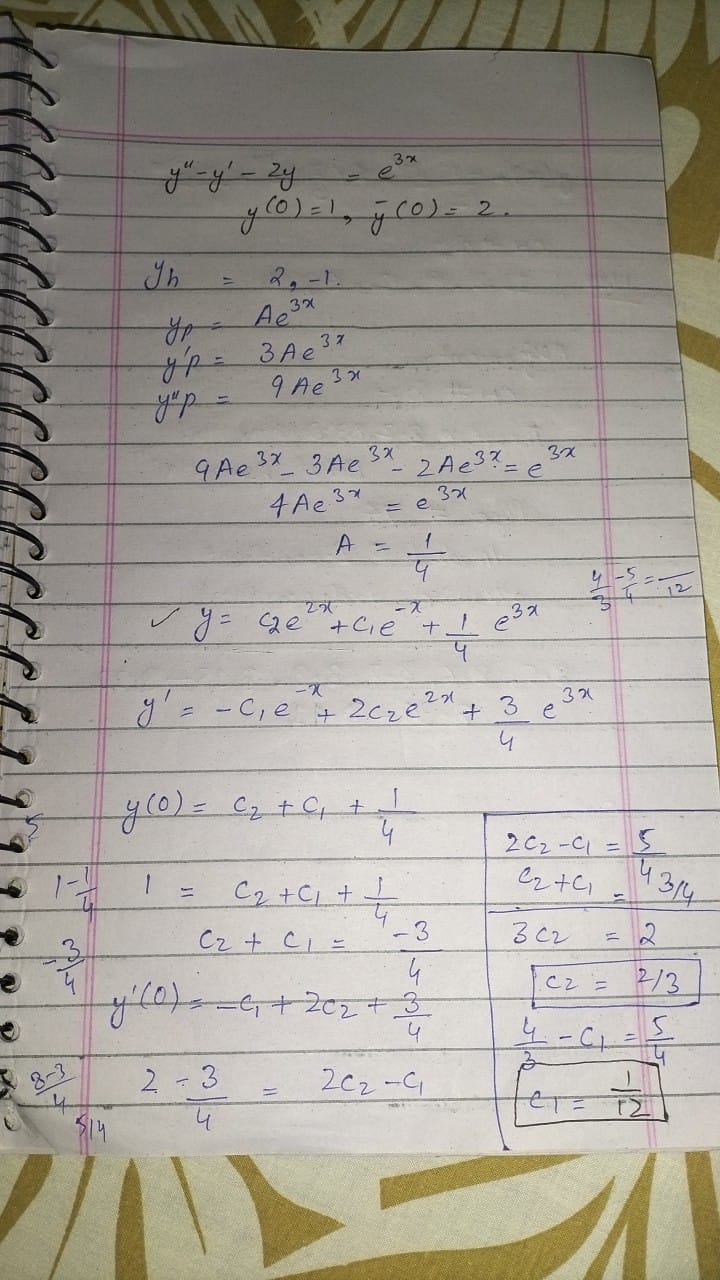 y'' - y' - 2y = e^3x
y(0) = 1, y̅(0) = 2.
yh = 2, -1.
yp = Ae^3x
y'p = 3Ae^3x
y''p = 9Ae^3x
9Ae^3x - 3Ae^3x - 2Ae^3x = e^3x
4Ae^3x = e^3x
A = 1/4
4/3 - 5/4 = /12
✓ y = c2e^2x + c1e^-x + 1/4 e^3x
y' = -c1e^-x + 2c2e^2x + 3/4 e^3x
y(0) = c2 + c1 + 1/4
5
1 - 1/4
1 = c2 + c1 + 1/4
c2 + c1 = -3/4
-3/4
y'(0) = -c1 + 2c2 + 3/4
8-3/4
5/4
2 - 3/4 = 2c2 - c1
2c2 - c1 = 5/4
c2 + c1 = 3/4
3c2 = 2
c2 = 2/3
4/3 - c1 = 5/4
c1 = 1/12